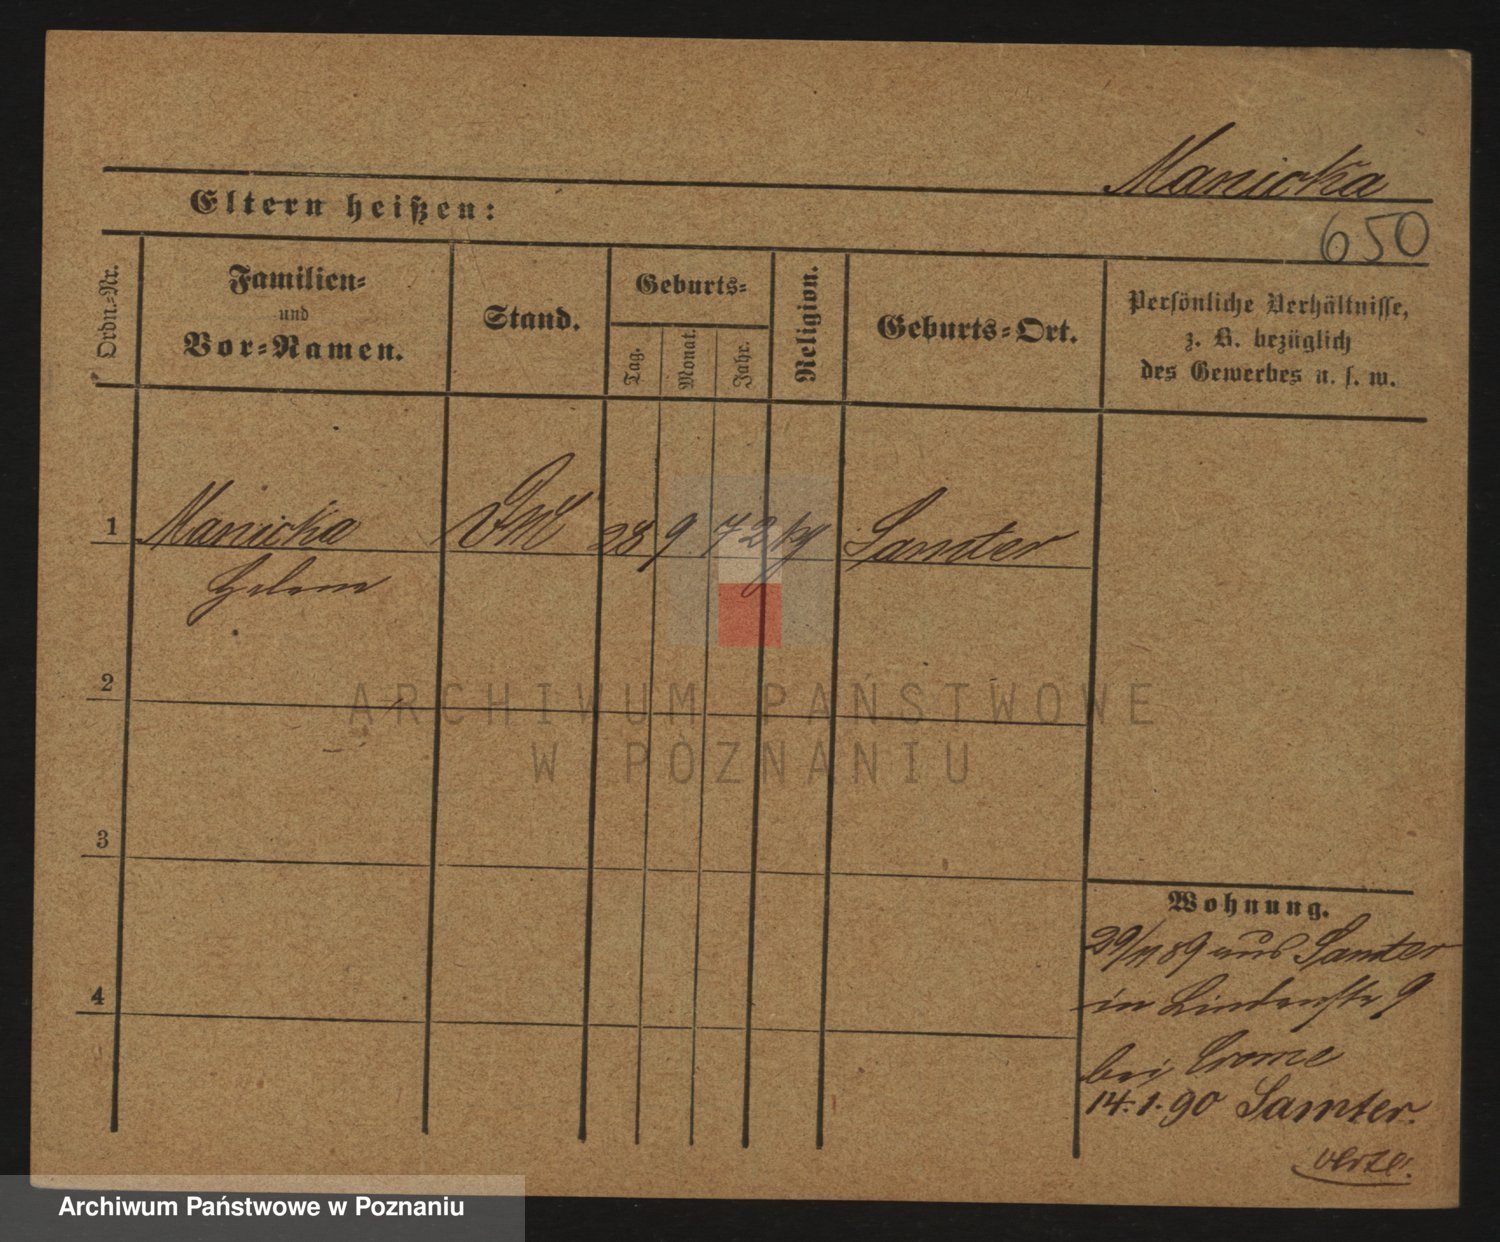 Manicka
Eltern heißen:
650
Ordn.-Nr.
Familien-
und
Vor-Namen.
Stand.
Geburts-
Tag.
Monat.
Jahr.
Religion.
Geburts-Ort.
Persönliche Verhältnisse,
z. B. bezüglich
des Gewerbes u. s. w.
1 Manicka 28 9 72 Samter
Helene
2
ARCHIWUM PAŃSTWOWE
W POZNANIU
3
4
Wohnung.
29/11 89 aus Samter
in Lindenstr 9
bei Crome
14.1.90 Samter.
verte.
Archiwum Państwowe w Poznaniu